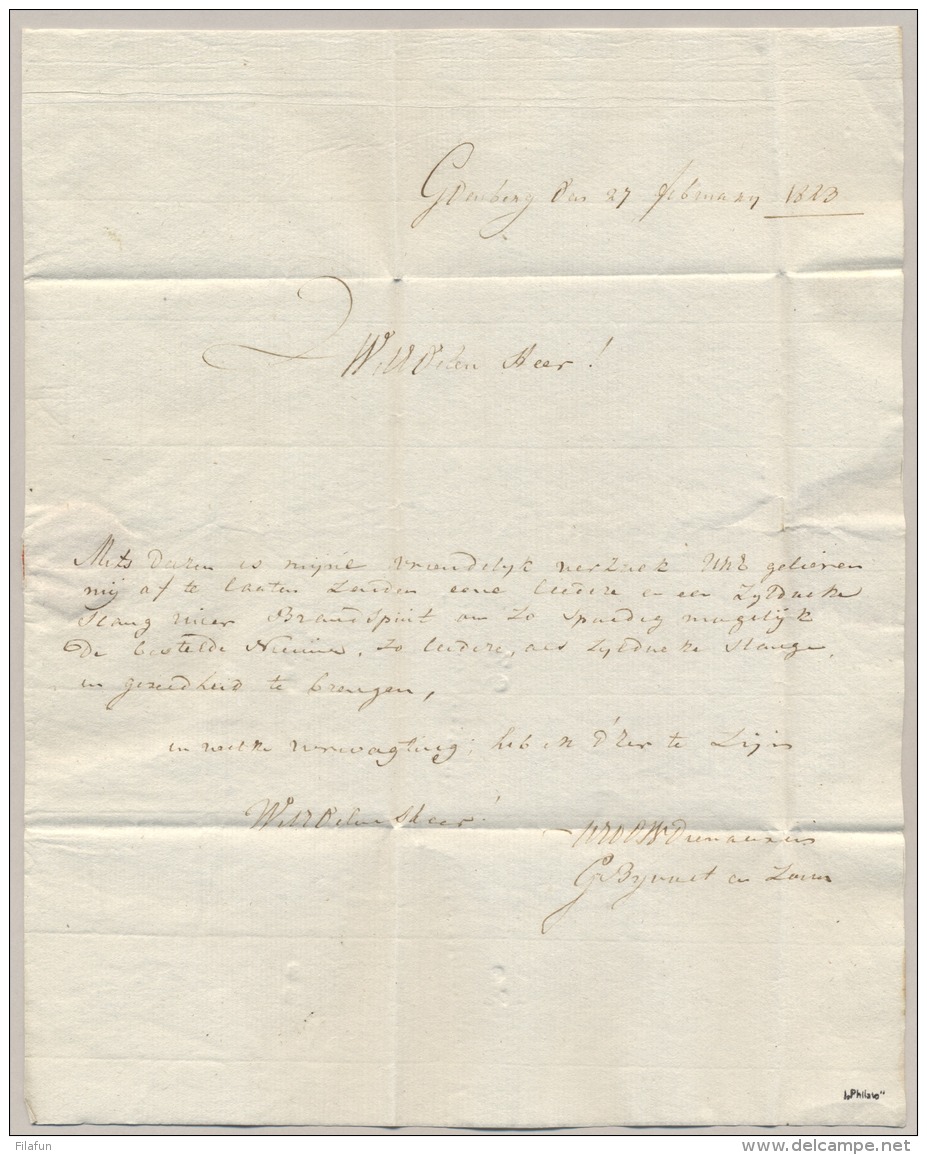 GDenberg den 27 february 1823
WelEdelen Heer!
Mits dezen is mijne vriendelyk verzoek UwE gelieven
mij af te laaten zenden eene leedere en een Zyldoeke
Slang Brandspuit en zo spoedig mogelijk
De bestelde Nieuwe, zo leedere, als zyldoeke slange,
in gereedheid te brengen,
in welke verwagting, heb ik d'Eer te zijn
WelEdelen Heer!
UWEDW Dienaaren
G Bijvoet en Zoon
"Philato"
Filafun
www.delcampe.net